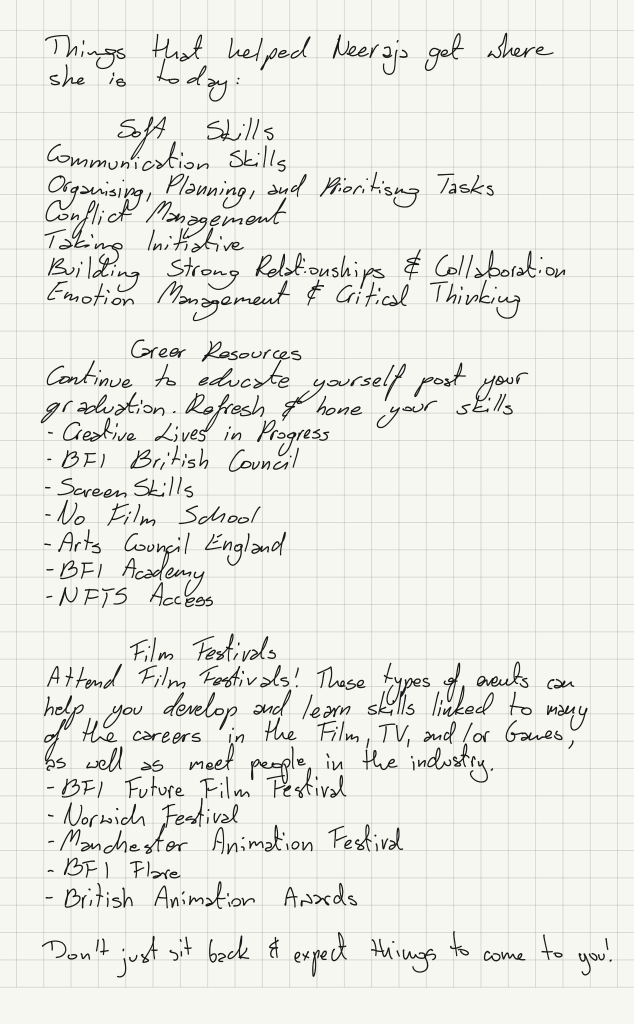 Things that helped Neeraja get where
she is today:
Soft Skills
Communication Skills
Organising, Planning, and Prioritising Tasks
Conflict Management
Taking Initiative
Building Strong Relationships & Collaboration
Emotion Management & Critical Thinking
Career Resources
Continue to educate yourself post your
graduation. Refresh & hone your skills
- Creative Lives in Progress
- BFI British Council
- ScreenSkills
- No Film School
- Arts Council England
- BFI Academy
- NFTS Access
Film Festivals
Attend Film Festivals! These types of events can
help you develop and learn skills linked to many
of the careers in the Film, TV, and/or Games,
as well as meet people in the industry.
- BFI Future Film Festival
- Norwich Festival
- Manchester Animation Festival
- BFI Flare
- British Animation Awards
Don't just sit back & expect things to come to you!